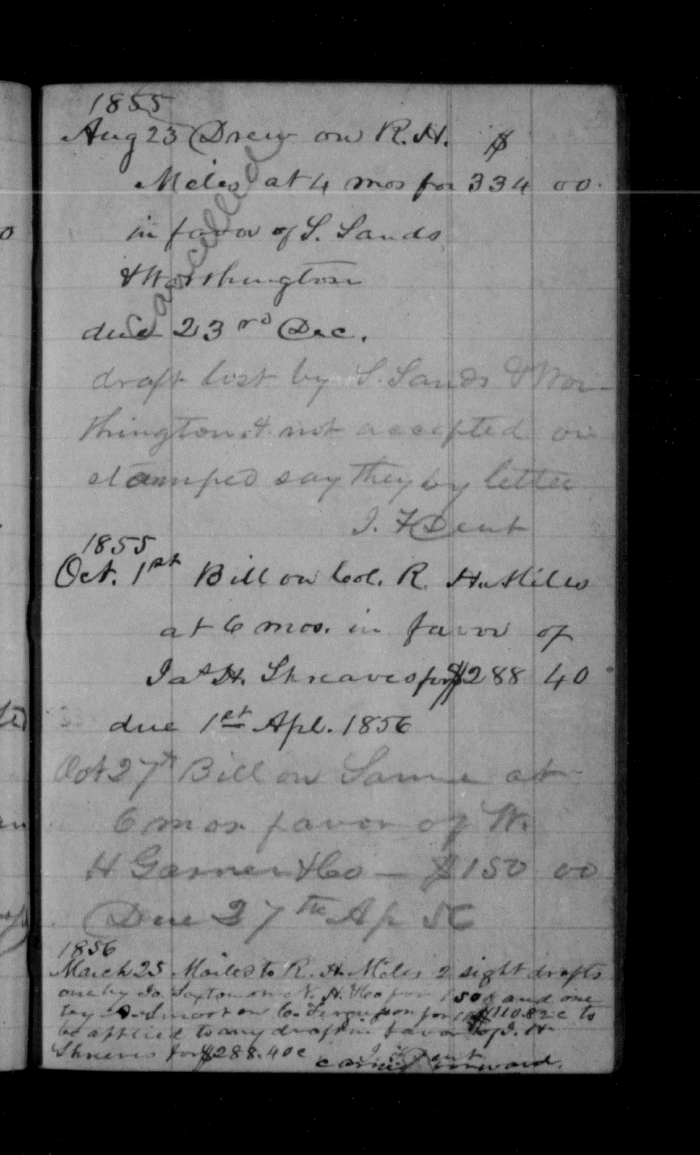 1855
Aug 23 Drew on R. H. $
Miles at 4 mos for 334 00
in favor of S. Sands
& Worthington
due 23rd Dec.
Cancelled
draft lost by S. Sands & Wor-
thington & not accepted or
stamped say they by letter
J. F Dent
1855
Oct. 1st Bill on Col. R. H. Miles
at 6 mos. in favor of
Jas H. Shreaves for $288 40
due 1st Apl. 1856
Oct 27th Bill on Same at
6 mos favor of W.
H Garner & Co — $150 00
Due 27th Ap 56
1856
March 25 Mailed to R. H. Miles 2 sight drafts
one by Jas Saxton on N. H. & Co for 150$ and one
by Smoot on C. Ferguson for $110.82c to
be applied to my draft in favor of J. H
Shreeves for $288.40c
J. F. Dent
carried forward.